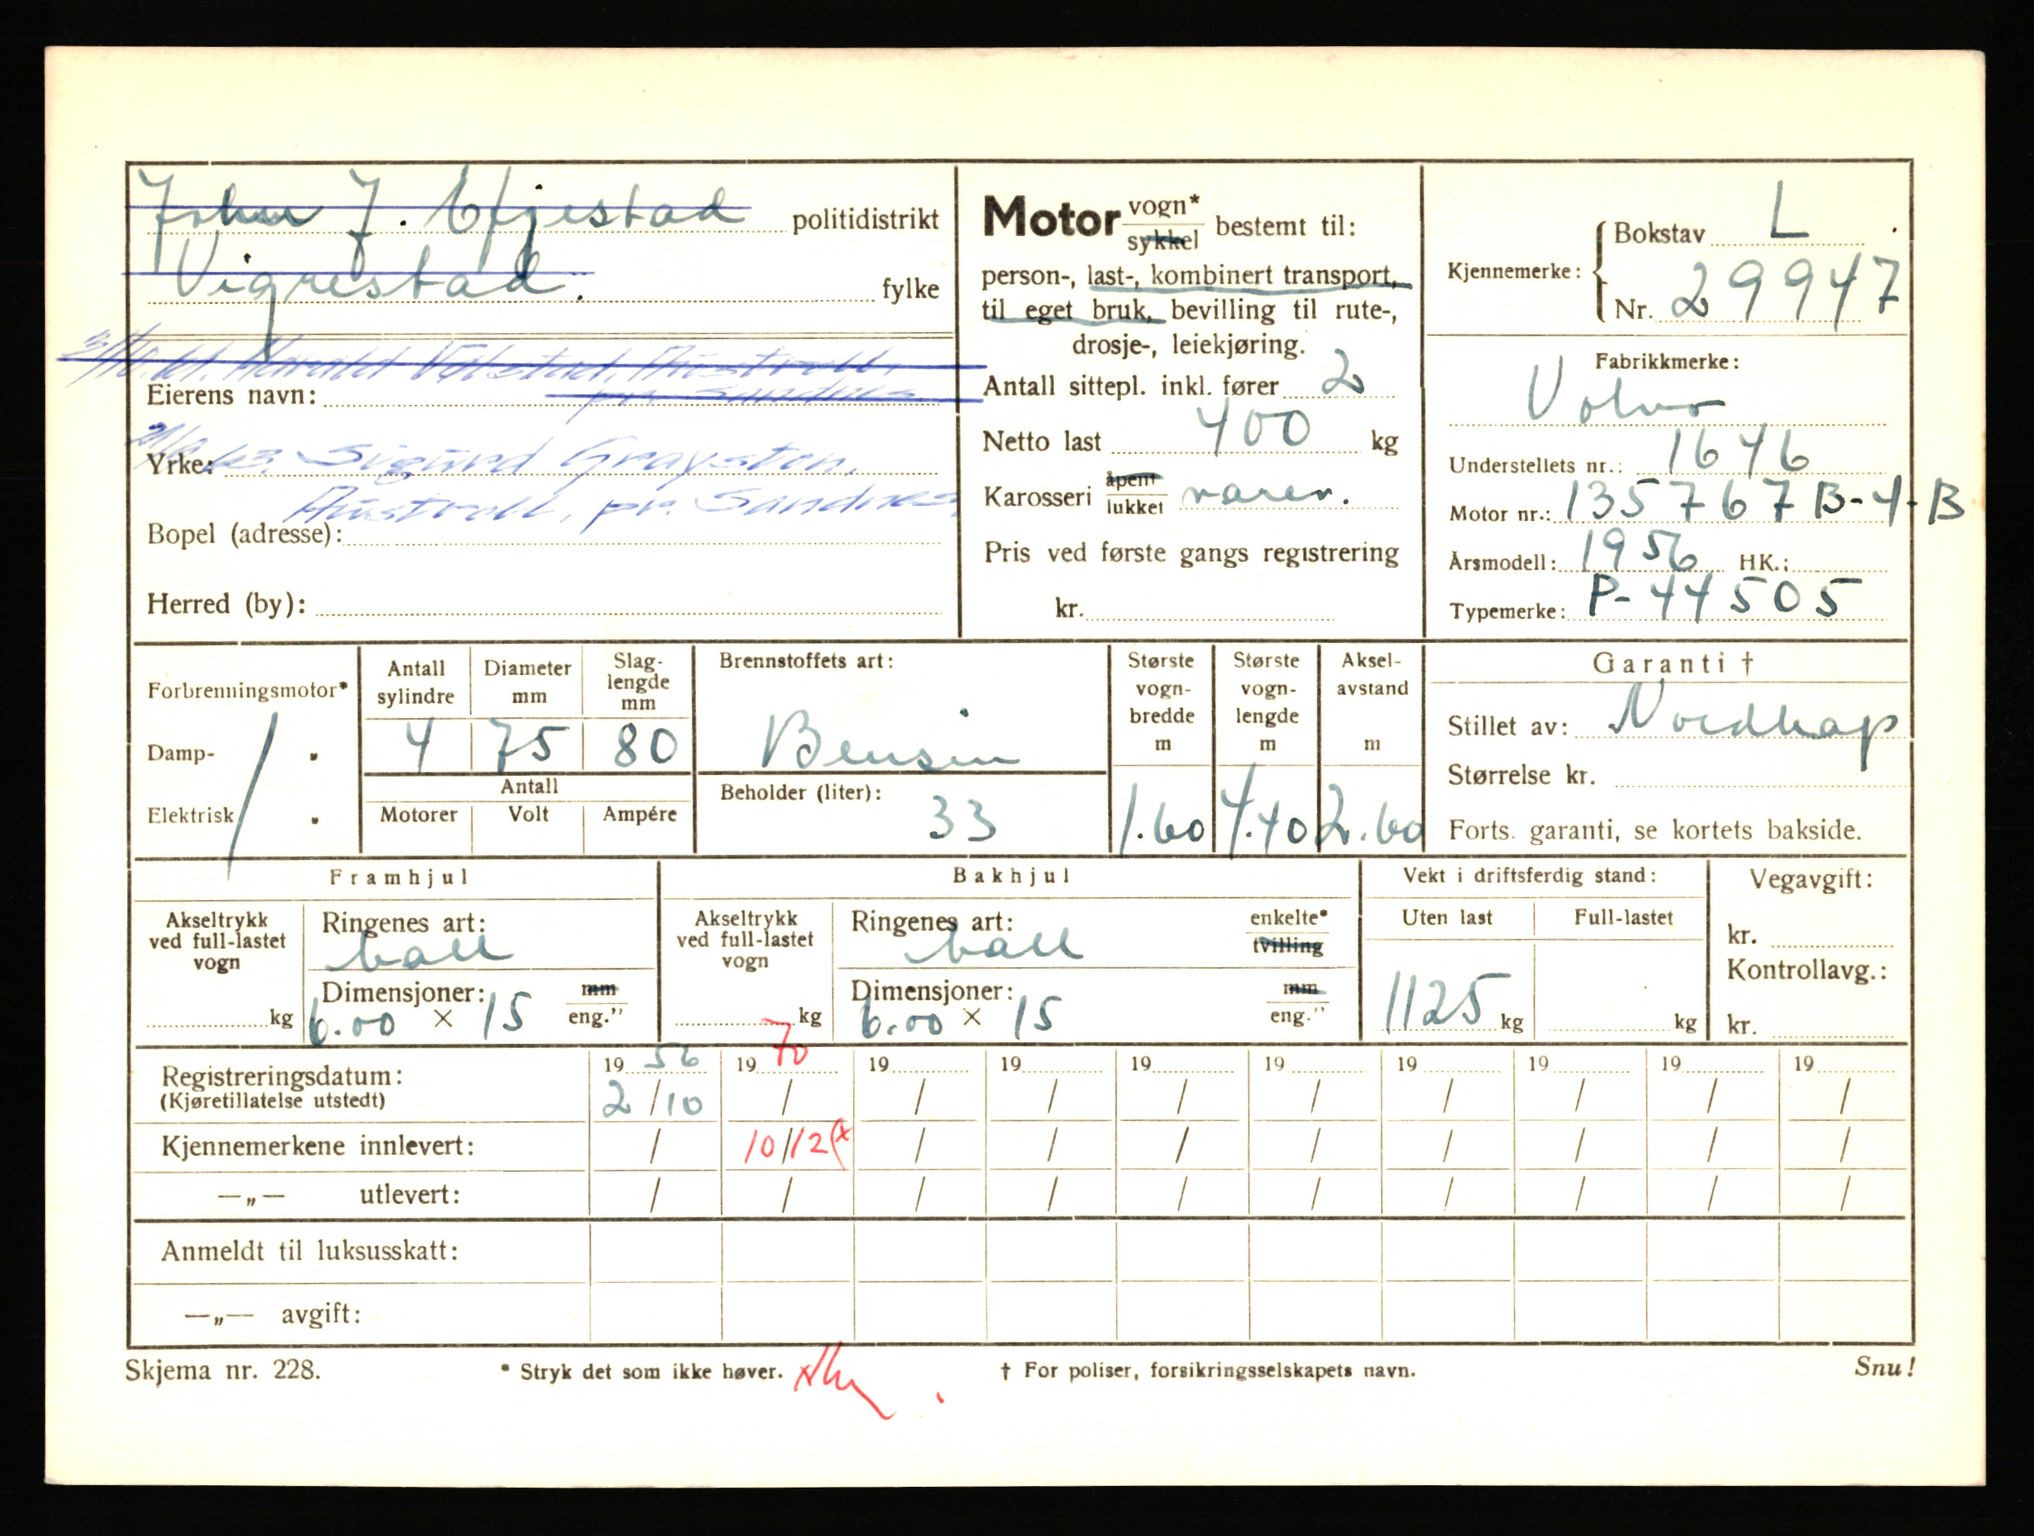 John J. Efjestad politidistrikt
Vigrestad. fylke
Harald Vølstad, Austrått,
Eierens navn: pr. Sandnes
Yrke: 63. Sigurd Graysten,
Austrått, pr. Sandnes
Bopel (adresse):
Herred (by):
Motor vogn* / sykkel bestemt til:
person-, last-, kombinert transport,
til eget bruk, bevilling til rute-,
drosje-, leiekjøring.
Antall sittepl. inkl. fører 2
Netto last 400 kg
Karosseri åpent / lukket varev.
Pris ved første gangs registrering
kr.
Kjennemerke: Bokstav L
Nr. 29947
Fabrikkmerke:
Volvo
Understellets nr.: 1646
Motor nr.: 135767 B-4-B
Årsmodell: 1956 HK.:
Typemerke: P-44505
Forbrenningsmotor*
Damp- "
Elektrisk "
Antall sylindre Diameter mm Slag-lengde mm
4 75 80
Antall
Motorer Volt Ampére
Brennstoffets art:
Bensin
Beholder (liter):
33
Største vogn-bredde m Største vogn-lengde m Aksel-avstand m
1.60 4.40 2.60
Garanti †
Stillet av: Nordkap
Størrelse kr.
Forts. garanti, se kortets bakside.
Framhjul
Akseltrykk ved full-lastet vogn
kg
Ringenes art:
ball
Dimensjoner: mm / eng."
6.00 × 15
Bakhjul
Akseltrykk ved full-lastet vogn
kg
Ringenes art: enkelte* / tvilling
ball
Dimensjoner: mm / eng."
6.00 × 15
Vekt i driftsferdig stand:
Uten last Full-lastet
1125 kg kg
Vegavgift:
kr.
Kontrollavg.:
kr.
19 56 19 70 19 19 19 19 19 19 19 19
Registreringsdatum: 2/10 / / / / / / / / /
(Kjøretillatelse utstedt)
Kjennemerkene innlevert: / 10/12 (x / / / / / / / /
—„— utlevert: / / / / / / / / / /
Anmeldt til luksusskatt:
—„— avgift:
Skjema nr. 228. * Stryk det som ikke høver. † For poliser, forsikringsselskapets navn. Snu!